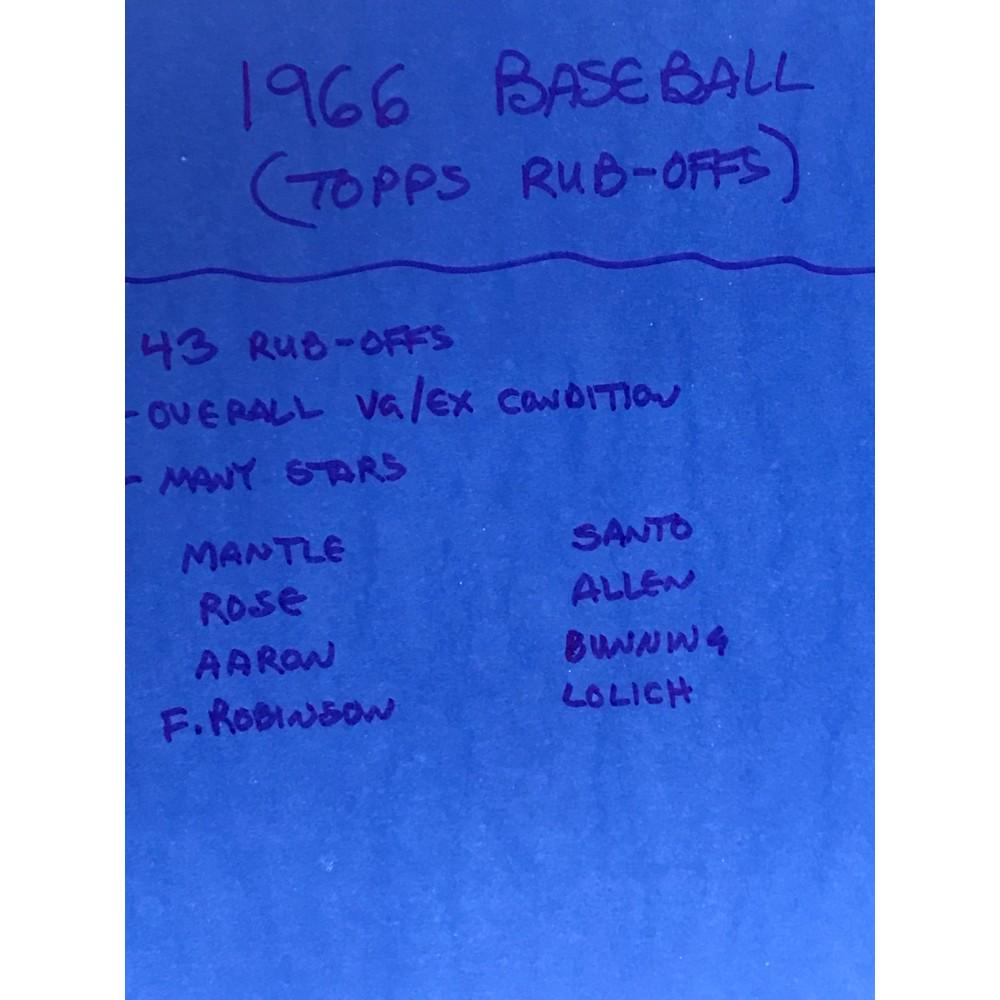 1966 BASEBALL
(TOPPS RUB-OFFS)
43 RUB-OFFS
-OVERALL VG/EX CONDITION
- MANY STARS
MANTLE
ROSE
AARON
F. ROBINSON
SANTO
ALLEN
BUNNING
LOLICH